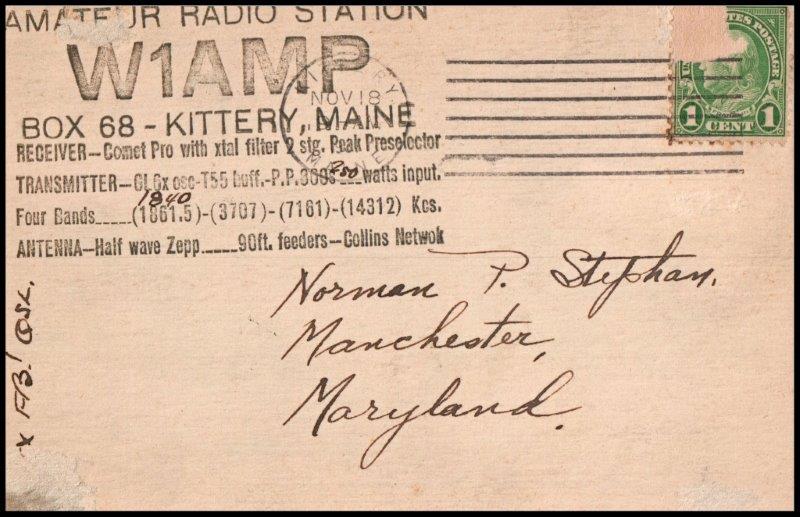 AMATEUR RADIO STATION
W1AMP
BOX 68 - KITTERY, MAINE
RECEIVER—Comet Pro with xtal filter 2 stg. Peak Preselector
TRANSMITTER— osc-T55 buff.-P.P. 250 watts input.
1840
Four Bands.....(1861.5)-(3707)-(7161)-(14312) Kcs.
ANTENNA—Half wave Zepp.....90ft. feeders—Collins Netwok
KITTERY
NOV 18
MAINE
STATES POSTAGE
1 CENT 1
Norman P. Stephan.
Manchester,
Maryland.
x F.B.! QSL.